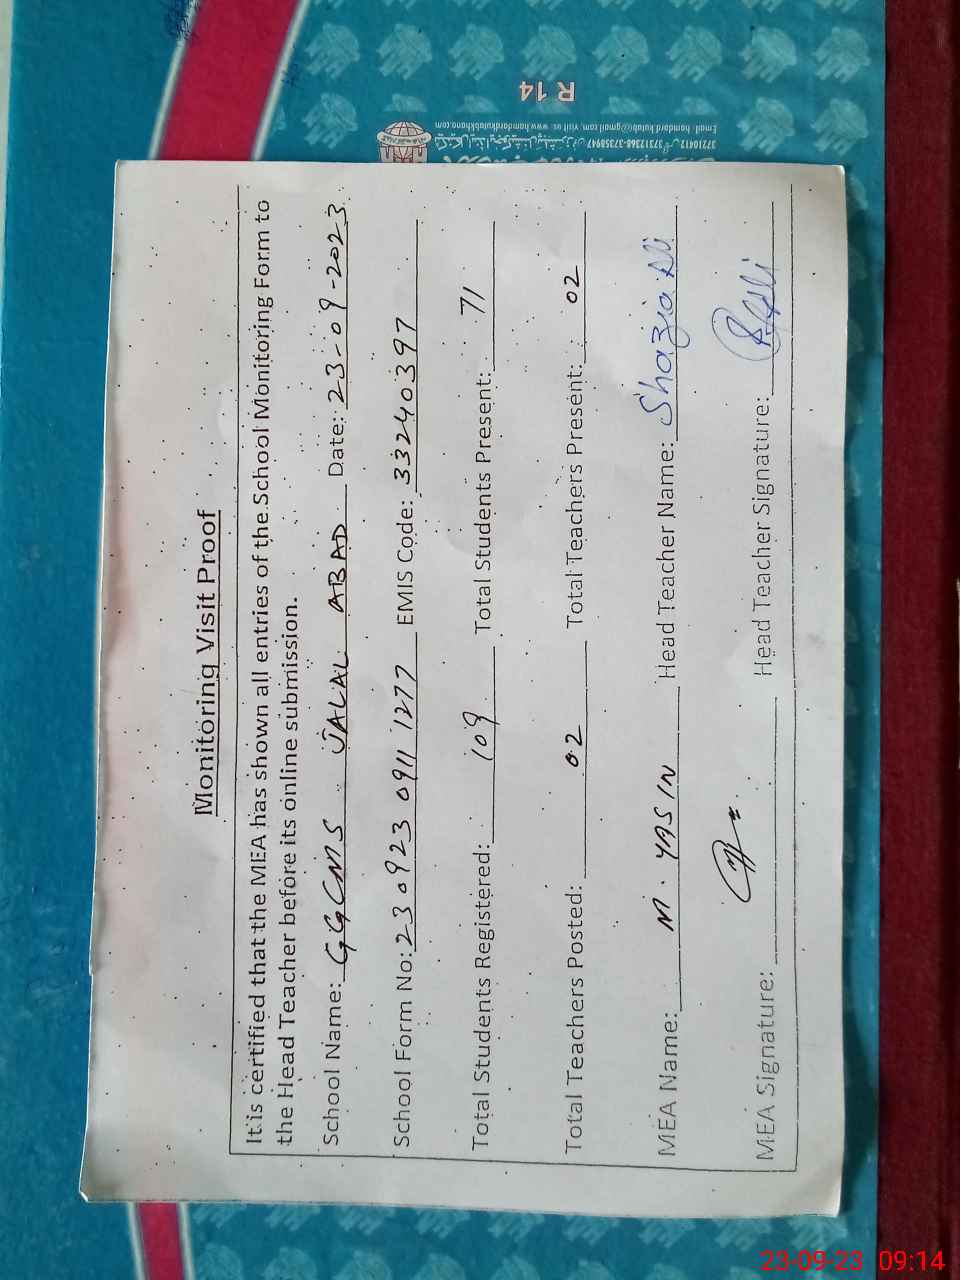 Monitoring Visit Proof
It is certified that the MEA has shown all entries of the School Monitoring Form to
the Head Teacher before its online submission.
School Name: GGCMS JALAL ABAD Date: 23-09-2023
School Form No: 230923 0911 1277 EMIS Code: 33240397
Total Students Registered: 109 Total Students Present: 71
Total Teachers Posted: 02 Total Teachers Present: 02
MEA Name: M. YASIN Head Teacher Name: Shazia Ali
MEA Signature: Head Teacher Signature:
R 14
Email: hamdardkutab@gmail.com, visit us: www.hamdardkutabkhana.com
37210412 37312368-37358947
23-09-23 09:14